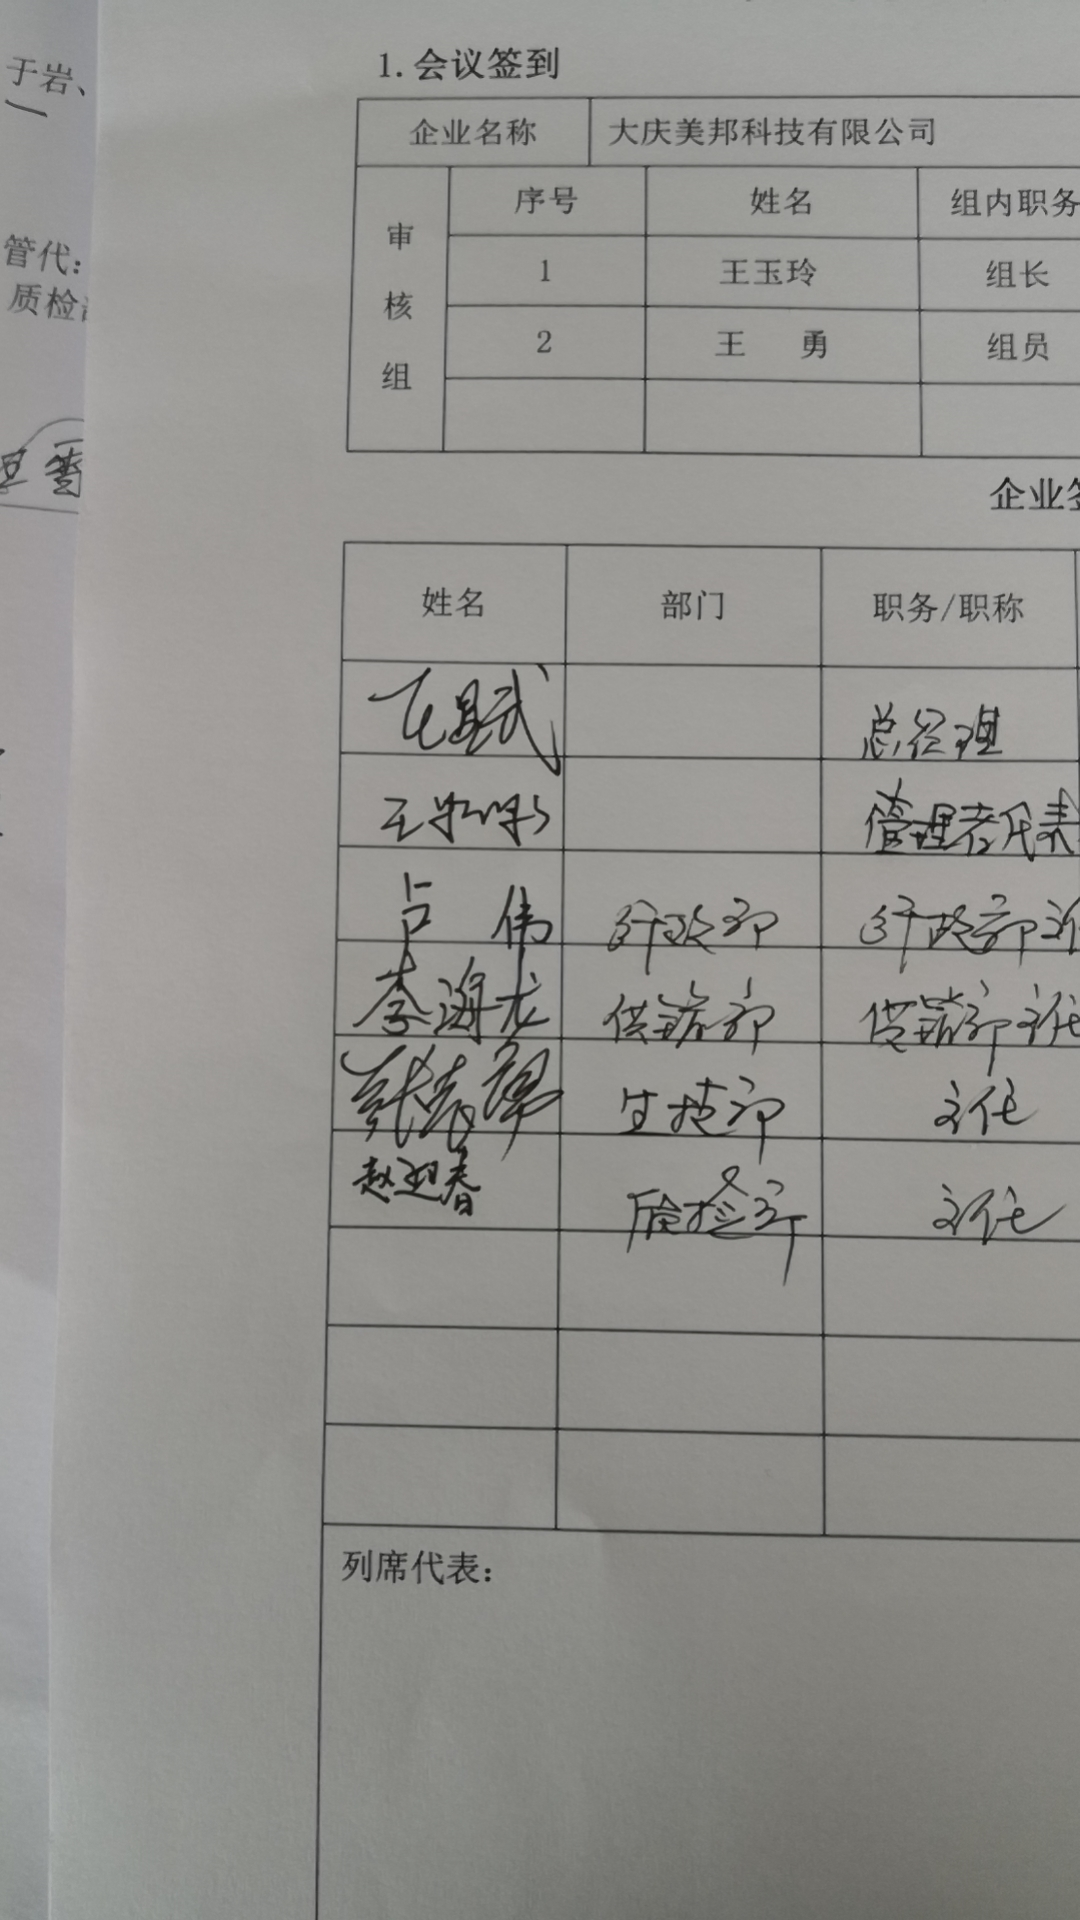 于岩、
管代：
质检
雷
1. 会议签到
企业名称 大庆美邦科技有限公司
审核组 序号 姓名 组内职务
1 王玉玲 组长
2 王 勇 组员
企业
姓名 部门 职务/职称
总经理
王 管理者代表
占 伟 行政部 行政部主
李海龙 供销部 供销部主任
张 生技部 主任
赵迎春 质检部 主任
列席代表：